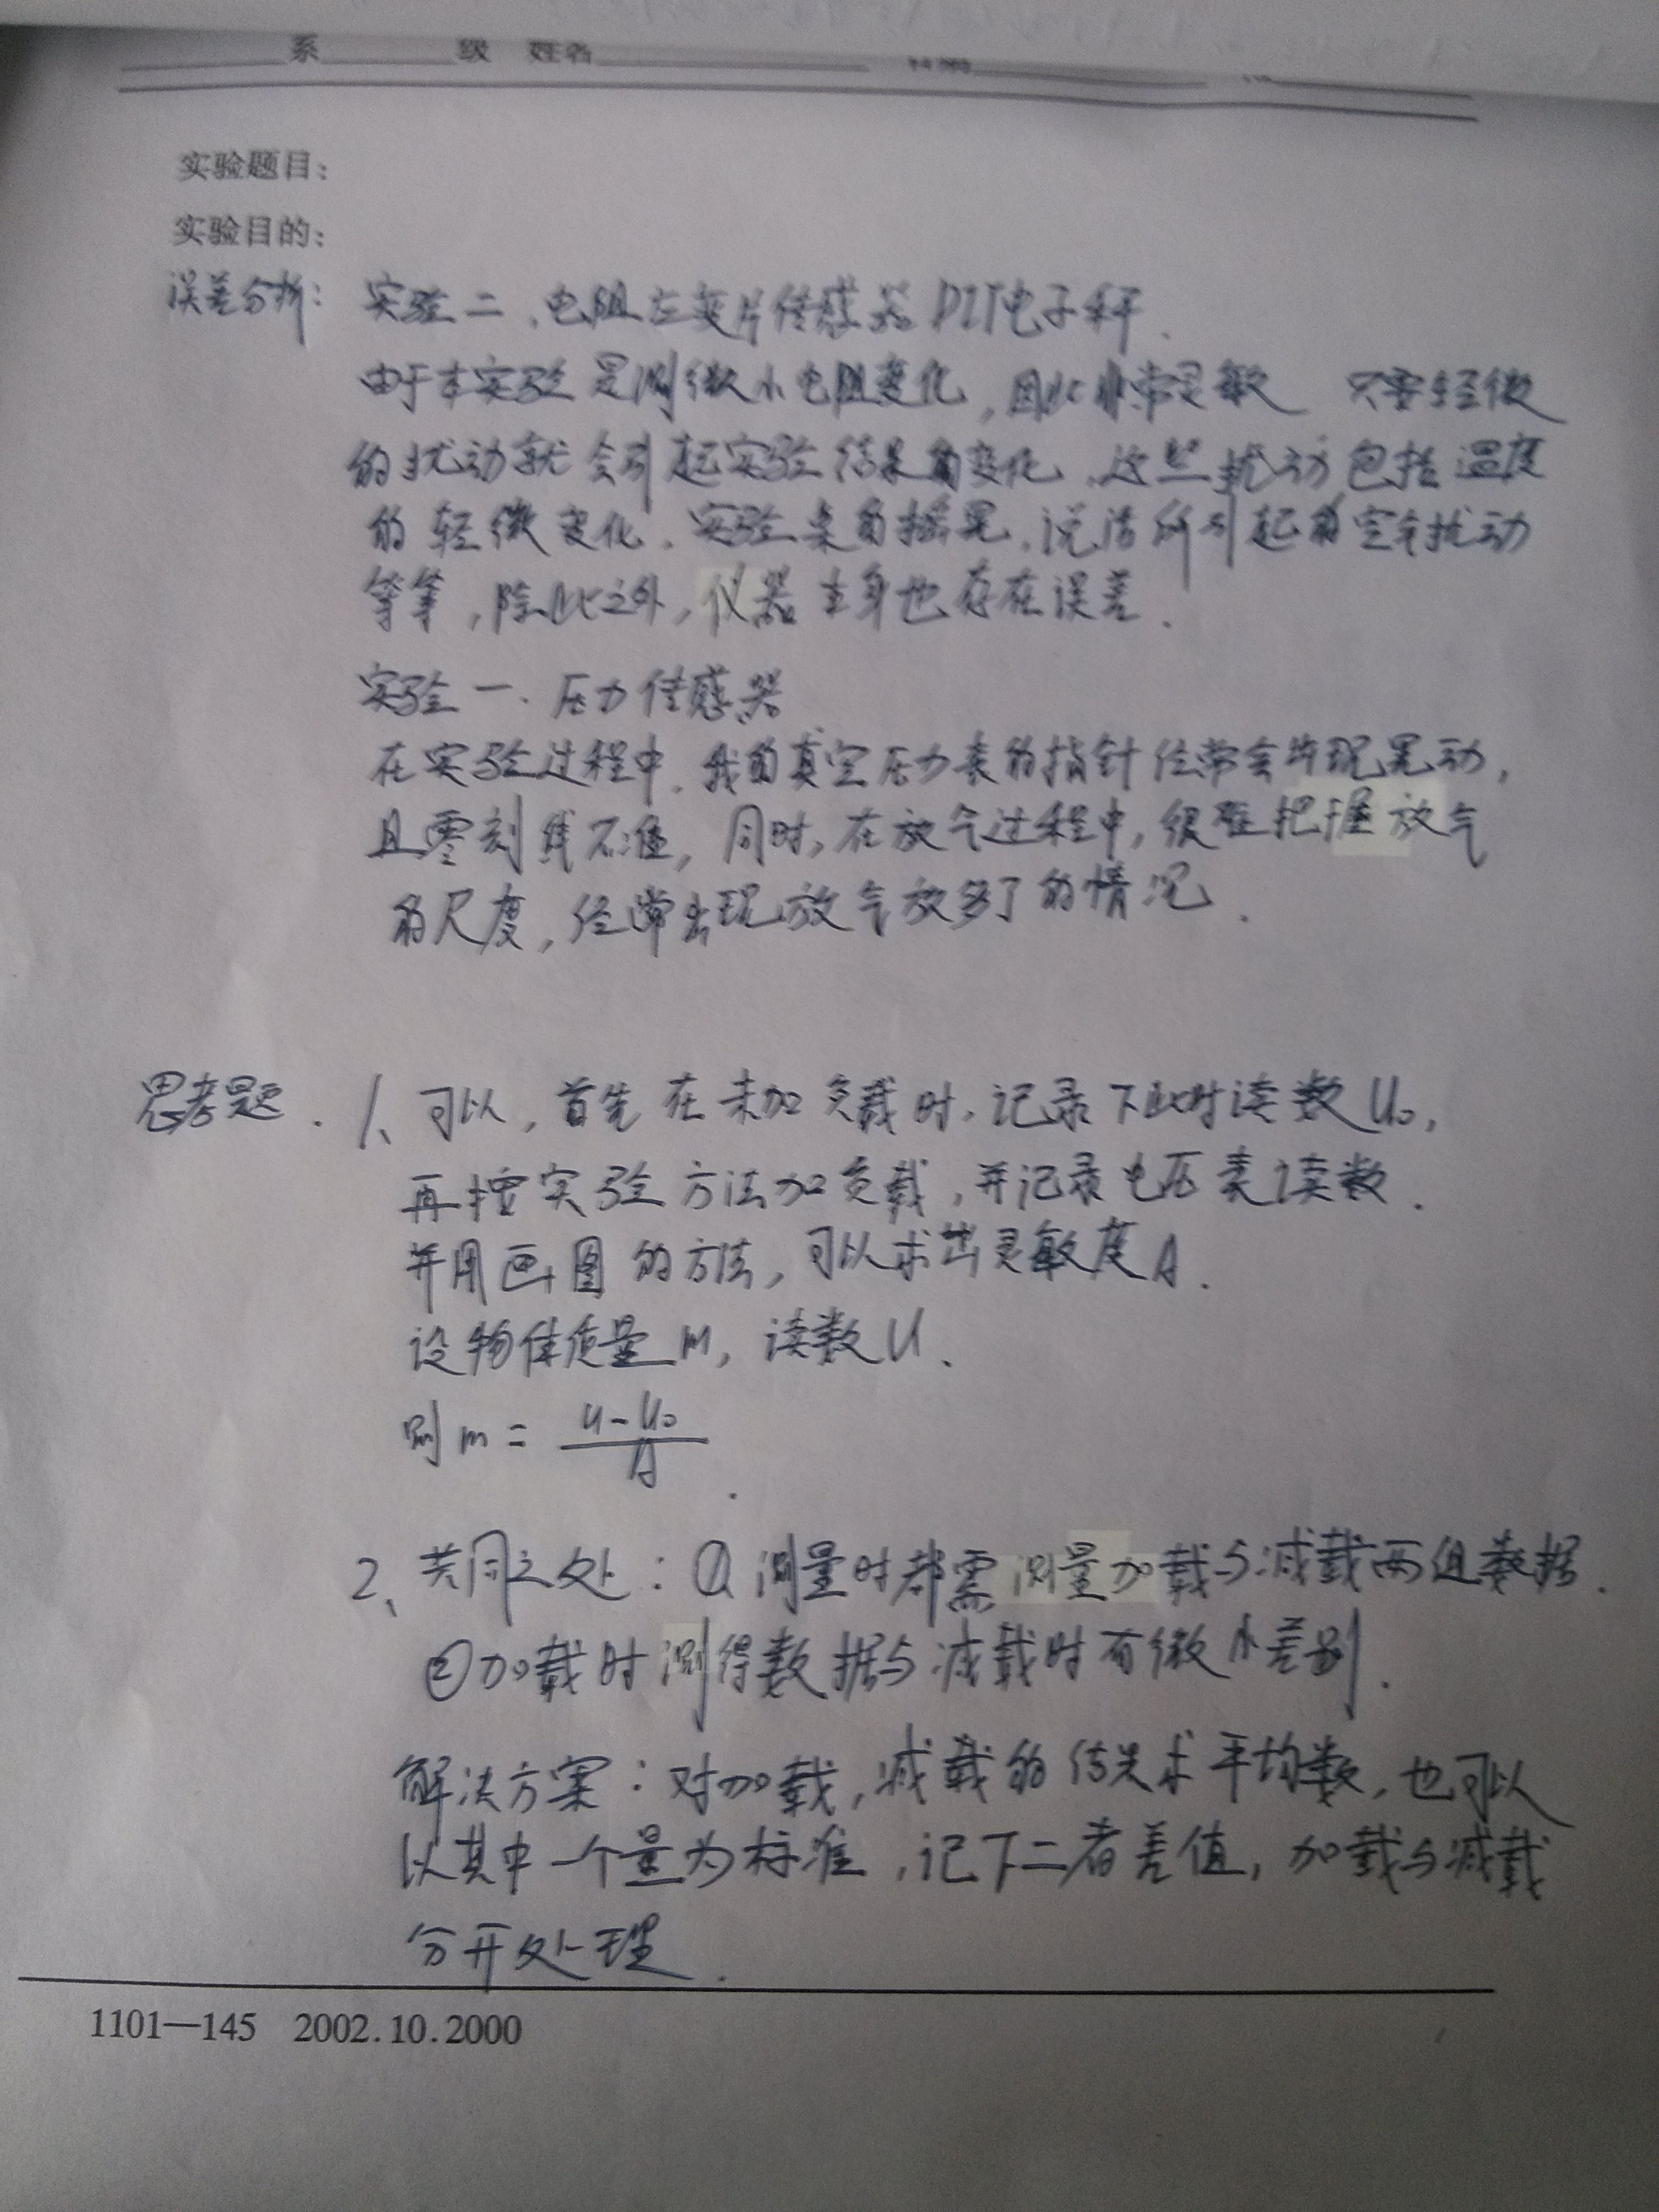 系 级 姓名
实验题目:
实验目的:
误差分析: 实验二、电阻应变片传感器DIY电子秤.
由于本实验是测微小电阻变化,因此非常灵敏 只要轻微
的扰动就会引起实验结果的变化.这些扰动包括温度
的轻微变化.实验桌的摇晃,说话所引起的空气扰动
等等,除此之外,仪器本身也存在误差.
实验一.压力传感器
在实验过程中.我的真空压力表的指针经常会出现晃动,
且零刻线不准,同时,在放气过程中,很难把握放气
的尺度,经常出现放气放多了的情况.
思考题. 1、可以,首先在未加负载时,记录下此时读数U₀,
再按实验方法加负载,并记录电压表读数.
并用画图的方法,可以求出灵敏度A.
设物体质量m,读数U.
则 m = \frac{U-U₀}{A}.
2、共同之处:① 测量时都需测量加载与减载两组数据.
②加载时测得数据与减载时有微小差别.
解决方案:对加载,减载的结果求平均数,也可以
以其中一个量为标准,记下二者差值,加载与减载
分开处理.
1101—145 2002.10.2000